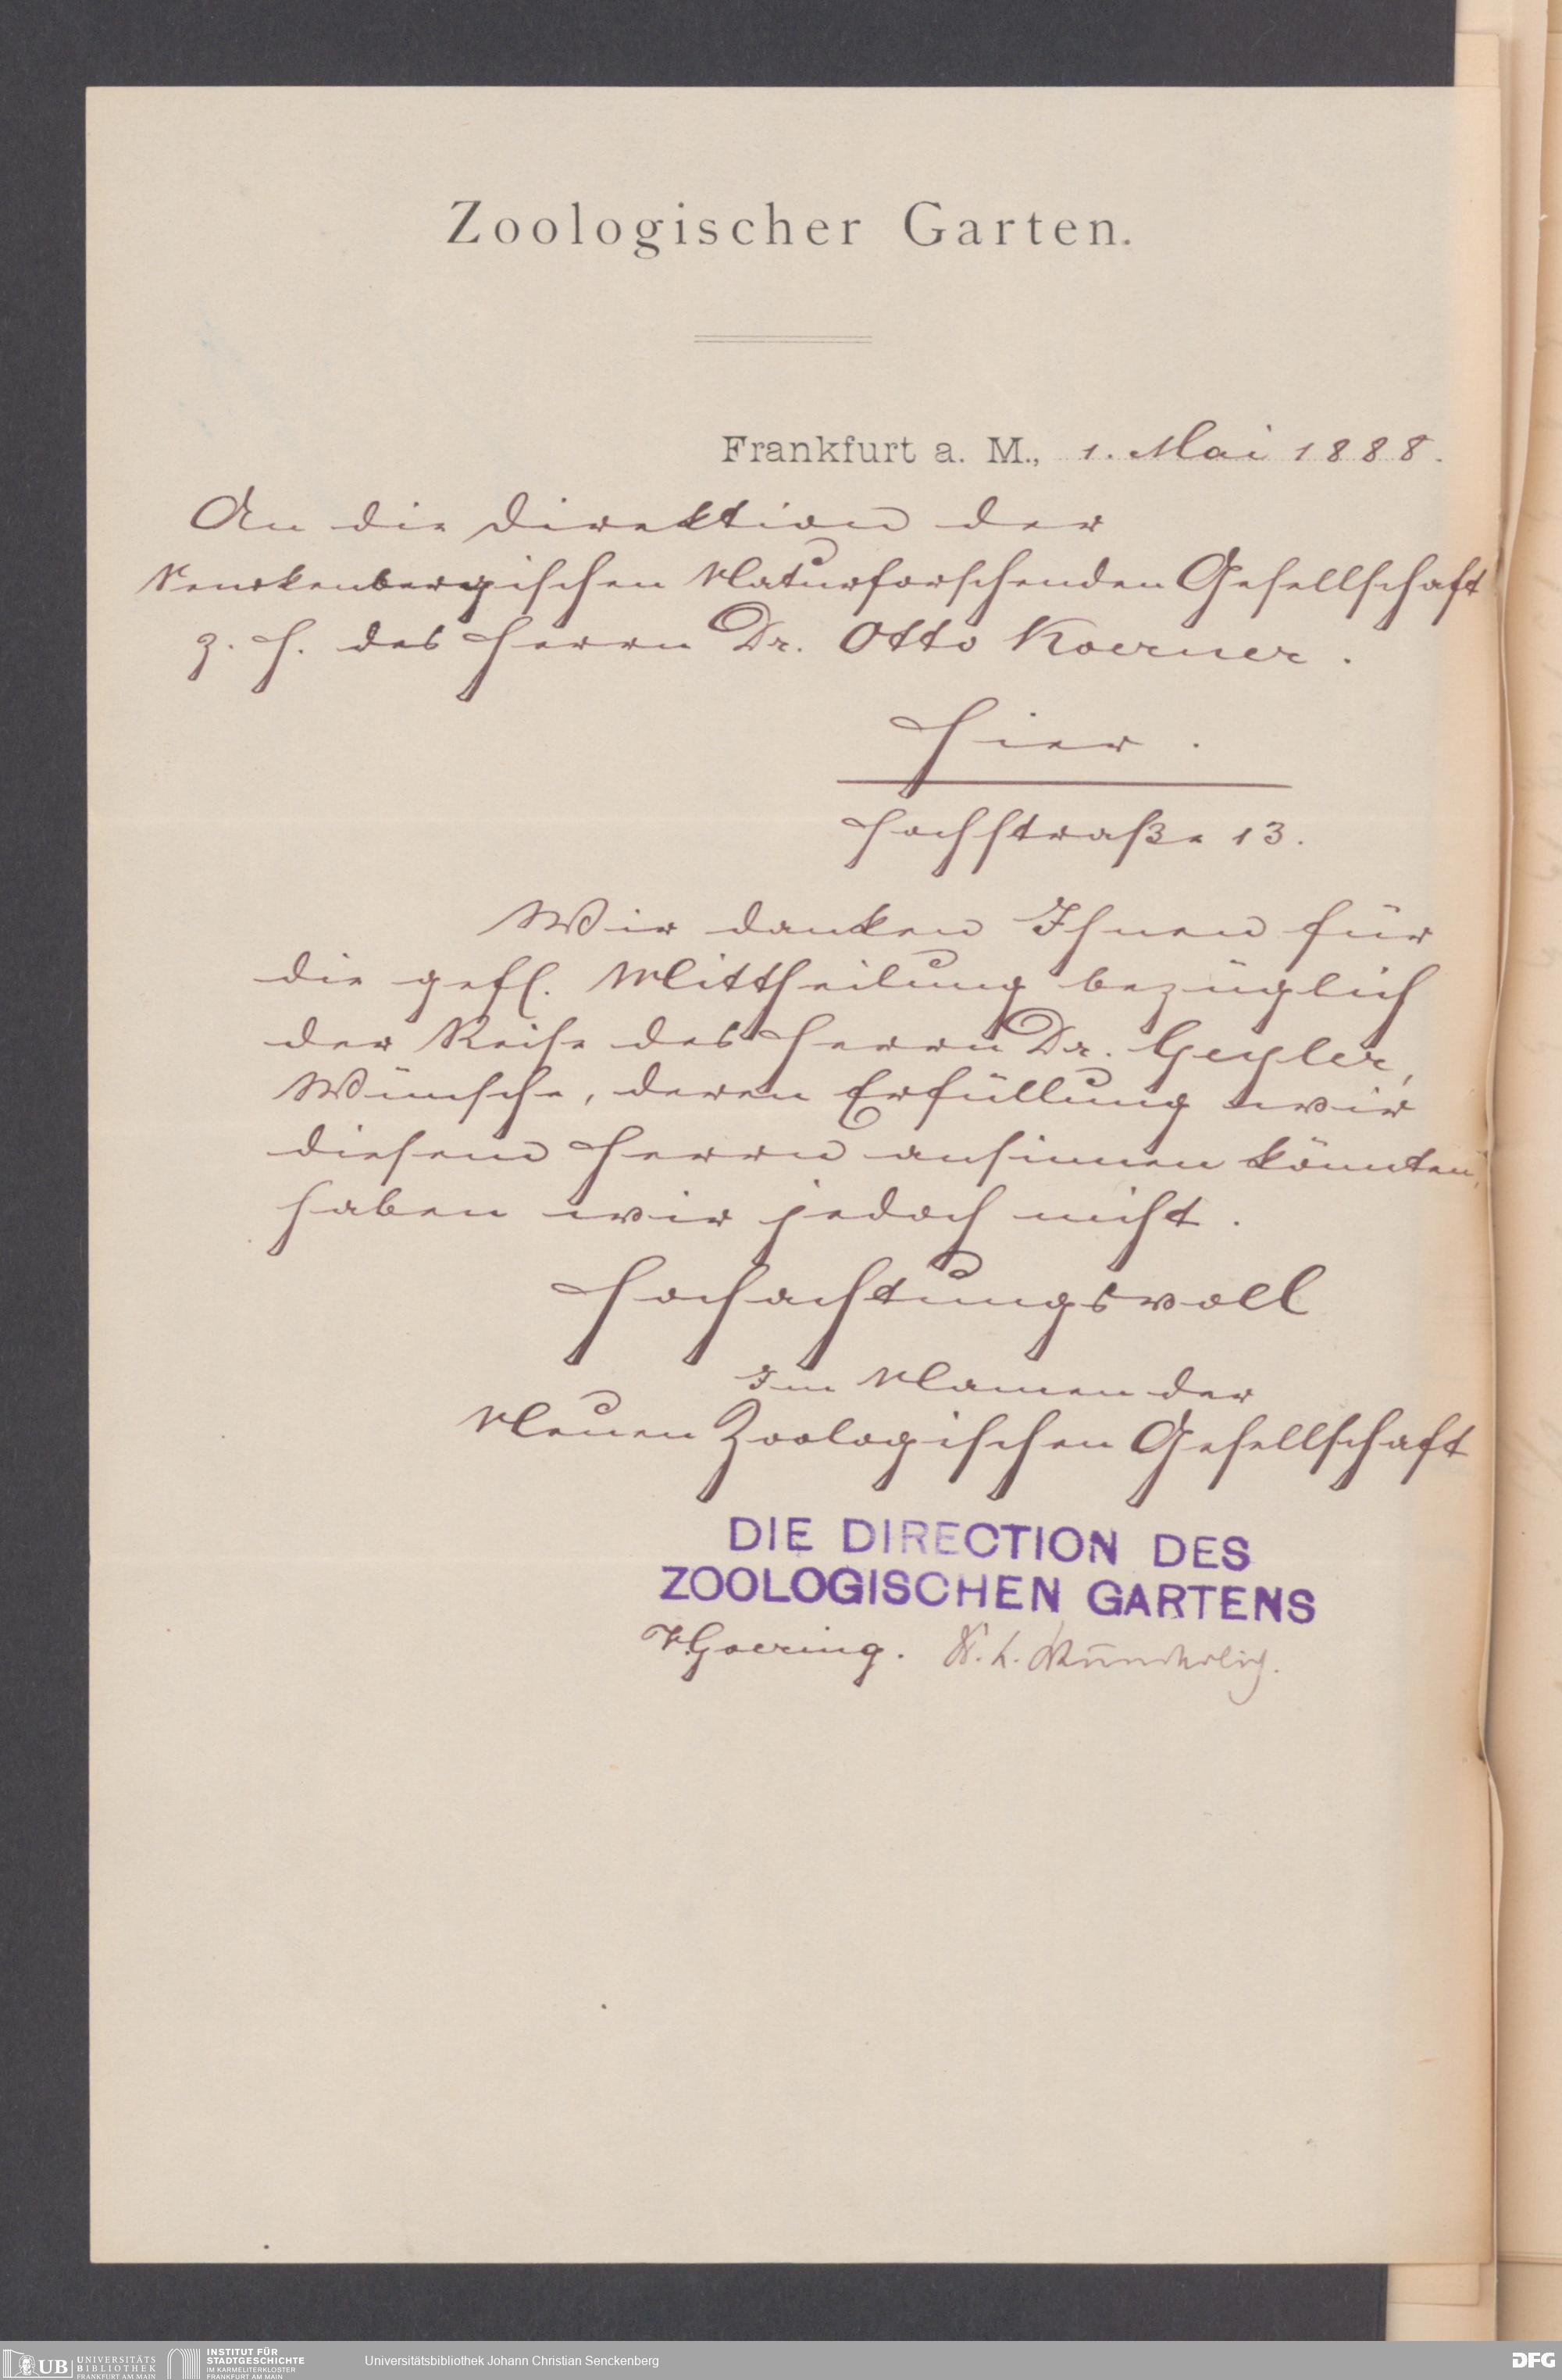 Zoologischer Garten.
Frankfurt a. M., 1. Mai 1888.
An die Direktion der
Senckenbergischen Naturforschenden Gesellschaft
z. H. des Herrn Dr. Otto Koerner.
Hier.
Hochstraße 13.
Wir danken Ihnen für
die gefl. Mittheilung bezüglich
der Reise des Herrn Dr. Geyler,
Wünsche, deren Erfüllung wir
diesem Herrn ansinnen könnten,
haben wir jedoch nicht.
Hochachtungsvoll
Im Namen der
Neuen Zoologischen Gesellschaft
DIE DIRECTION DES
ZOOLOGISCHEN GARTENS
V. Goering.
UB UNIVERSITÄTS
BIBLIOTHEK
FRANKFURT AM MAIN
INSTITUT FÜR
STADTGESCHICHTE
IM KARMELITERKLOSTER
FRANKFURT AM MAIN
Universitätsbibliothek Johann Christian Senckenberg
DFG